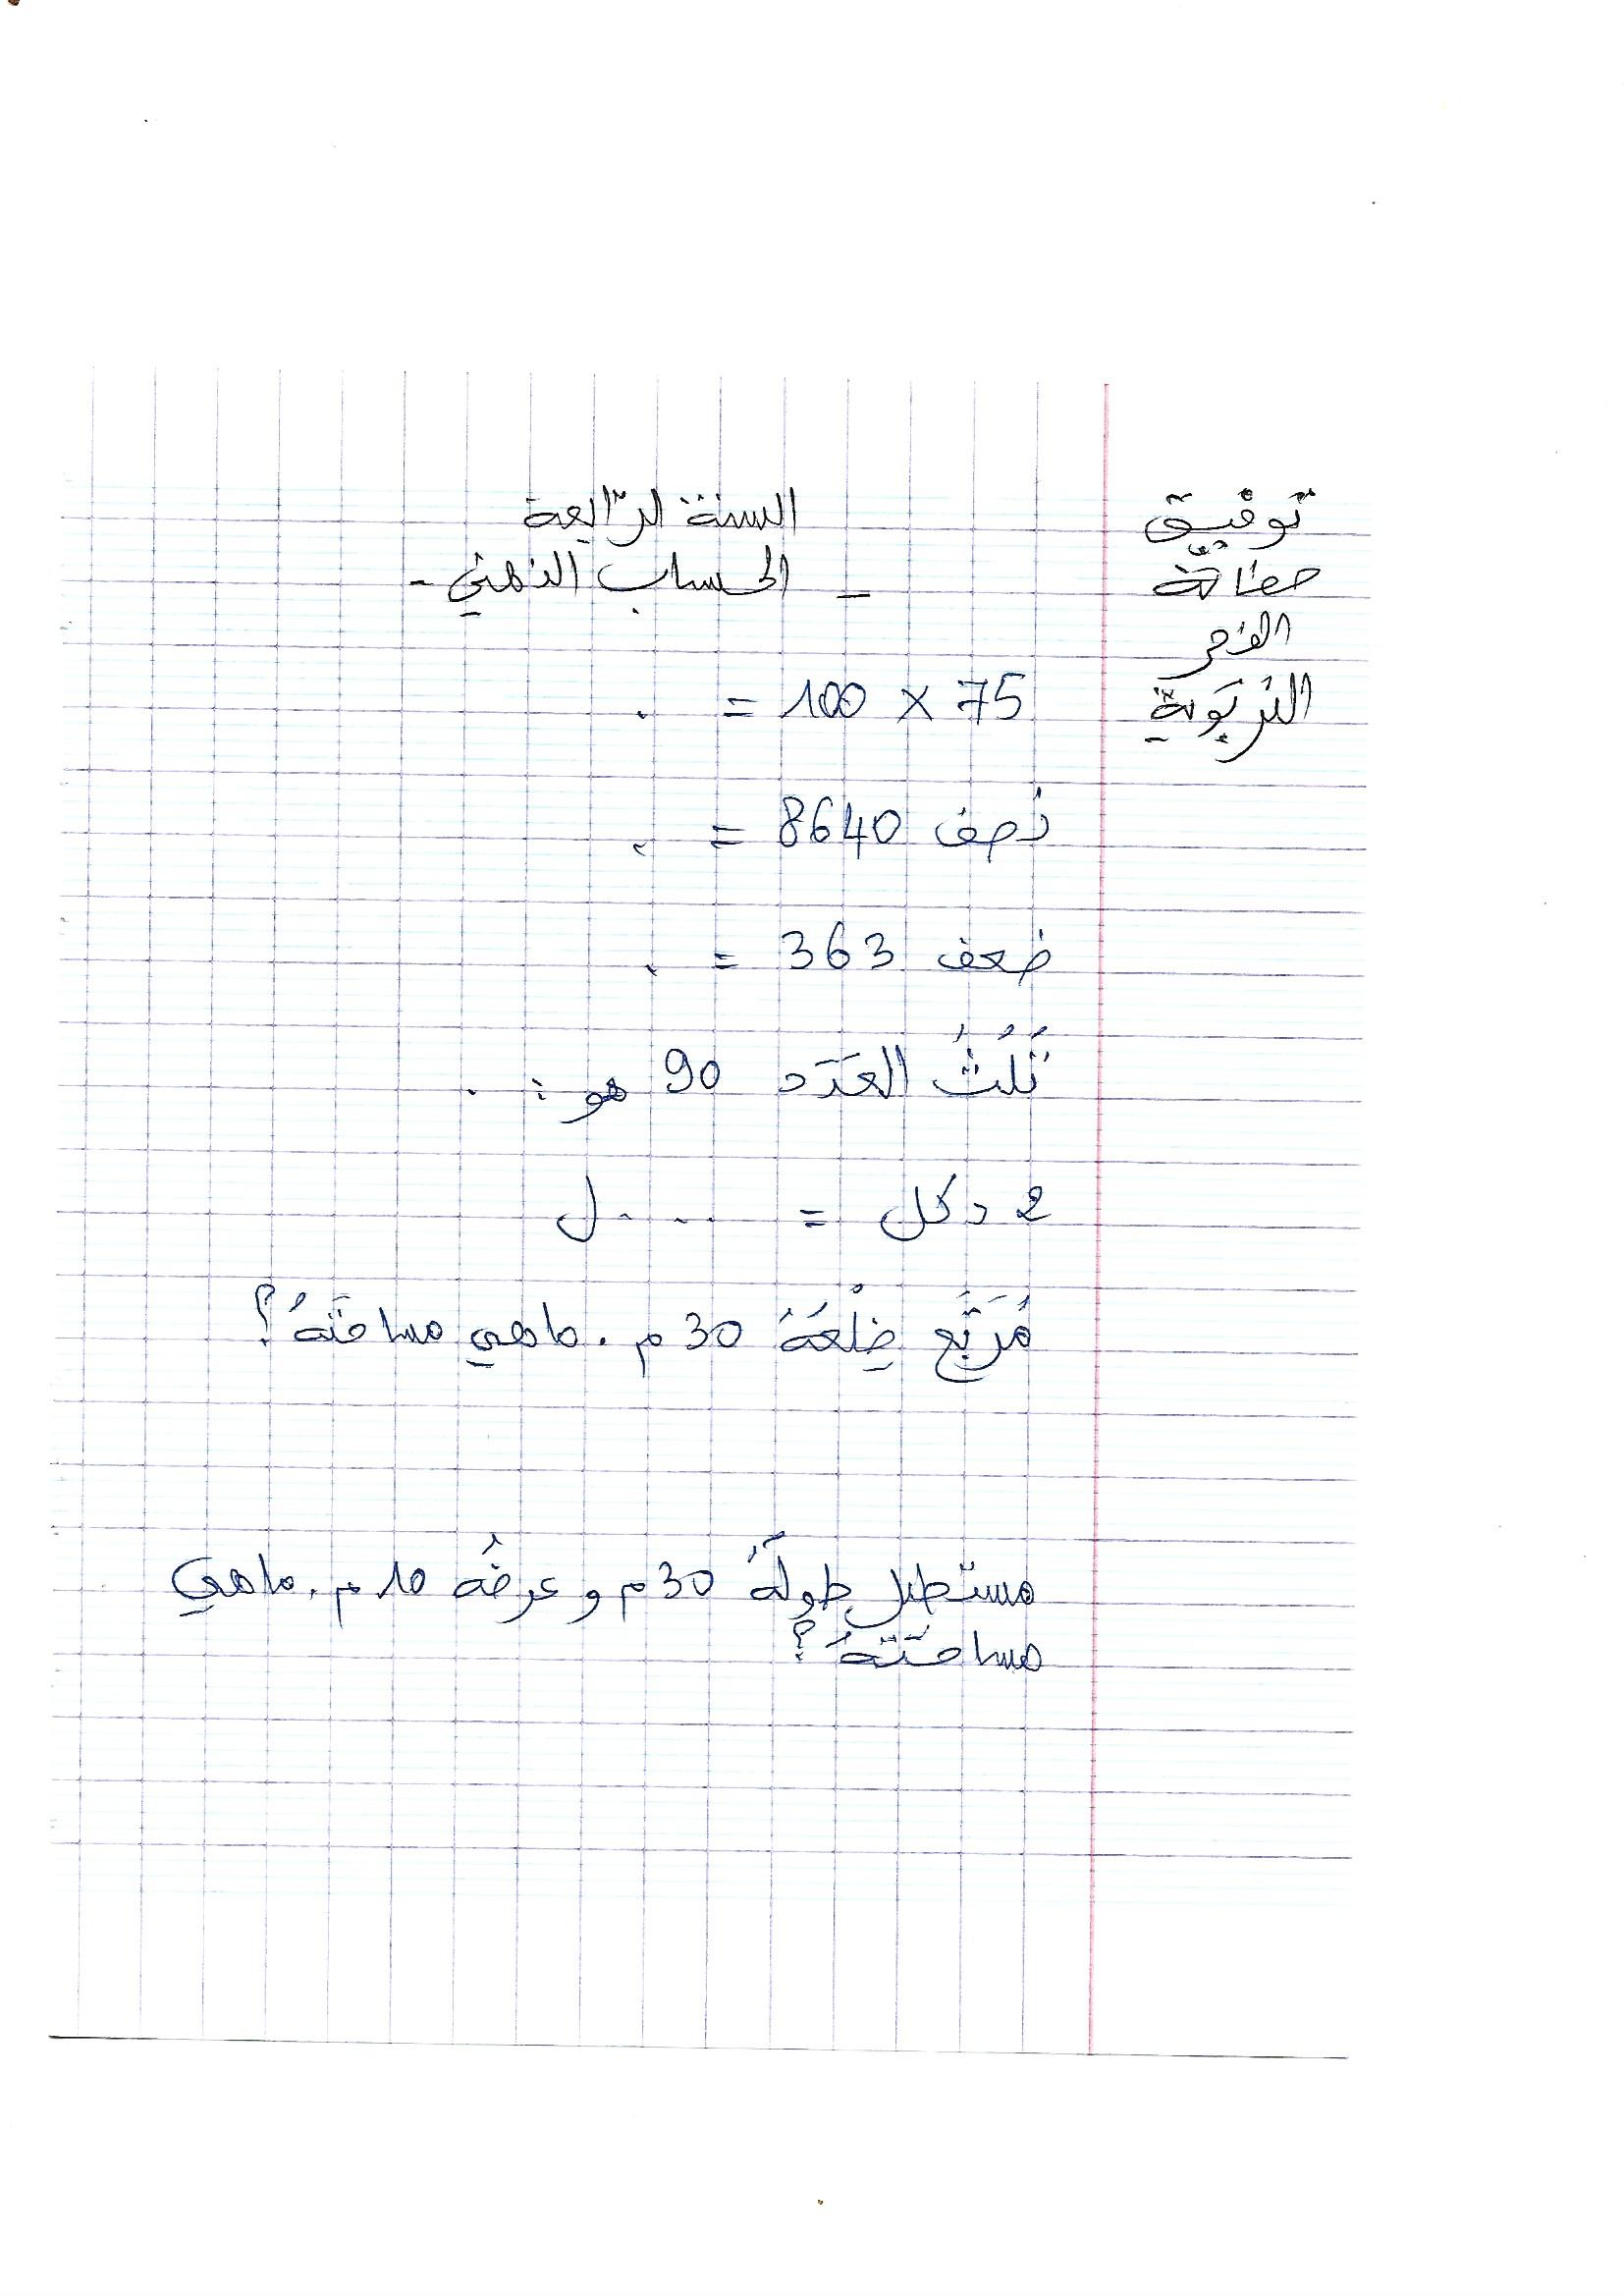 توفيق
حفاتة
الفجر
التربَوية
السنة الرّابعة
_ الحساب الذهني -
75 × 100 = .
نُصف 8640 = .
ضعف 363 = .
ثُلُثُ العَدَد 90 هو : .
2 دكل = .... ل
مُرَبَّع ضِلْعَهُ 30 م . ما هي مساحتَهُ ؟
مستطيل طولَهُ 30 م و عرضُه 10 م . ما هي
مساحَتَهُ ؟